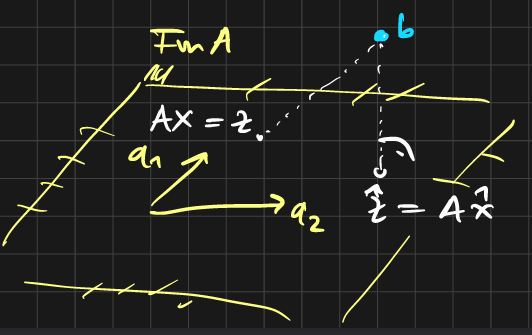 Im A
b
AX = z
a₁
a₂
ẑ = A x̂